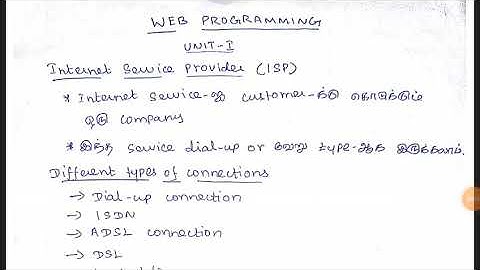 WEB PROGRAMMING
UNIT-I
Internet Service Provider (ISP)
* Internet Service-ஐ customer-க்கு கொடுக்கும்
ஒரு company
* இந்த service dial-up or வேறு type-ஆக இருக்கலாம்.
Different types of connections
→ Dial-up connection
→ ISDN
→ ADSL connection
→ DSL